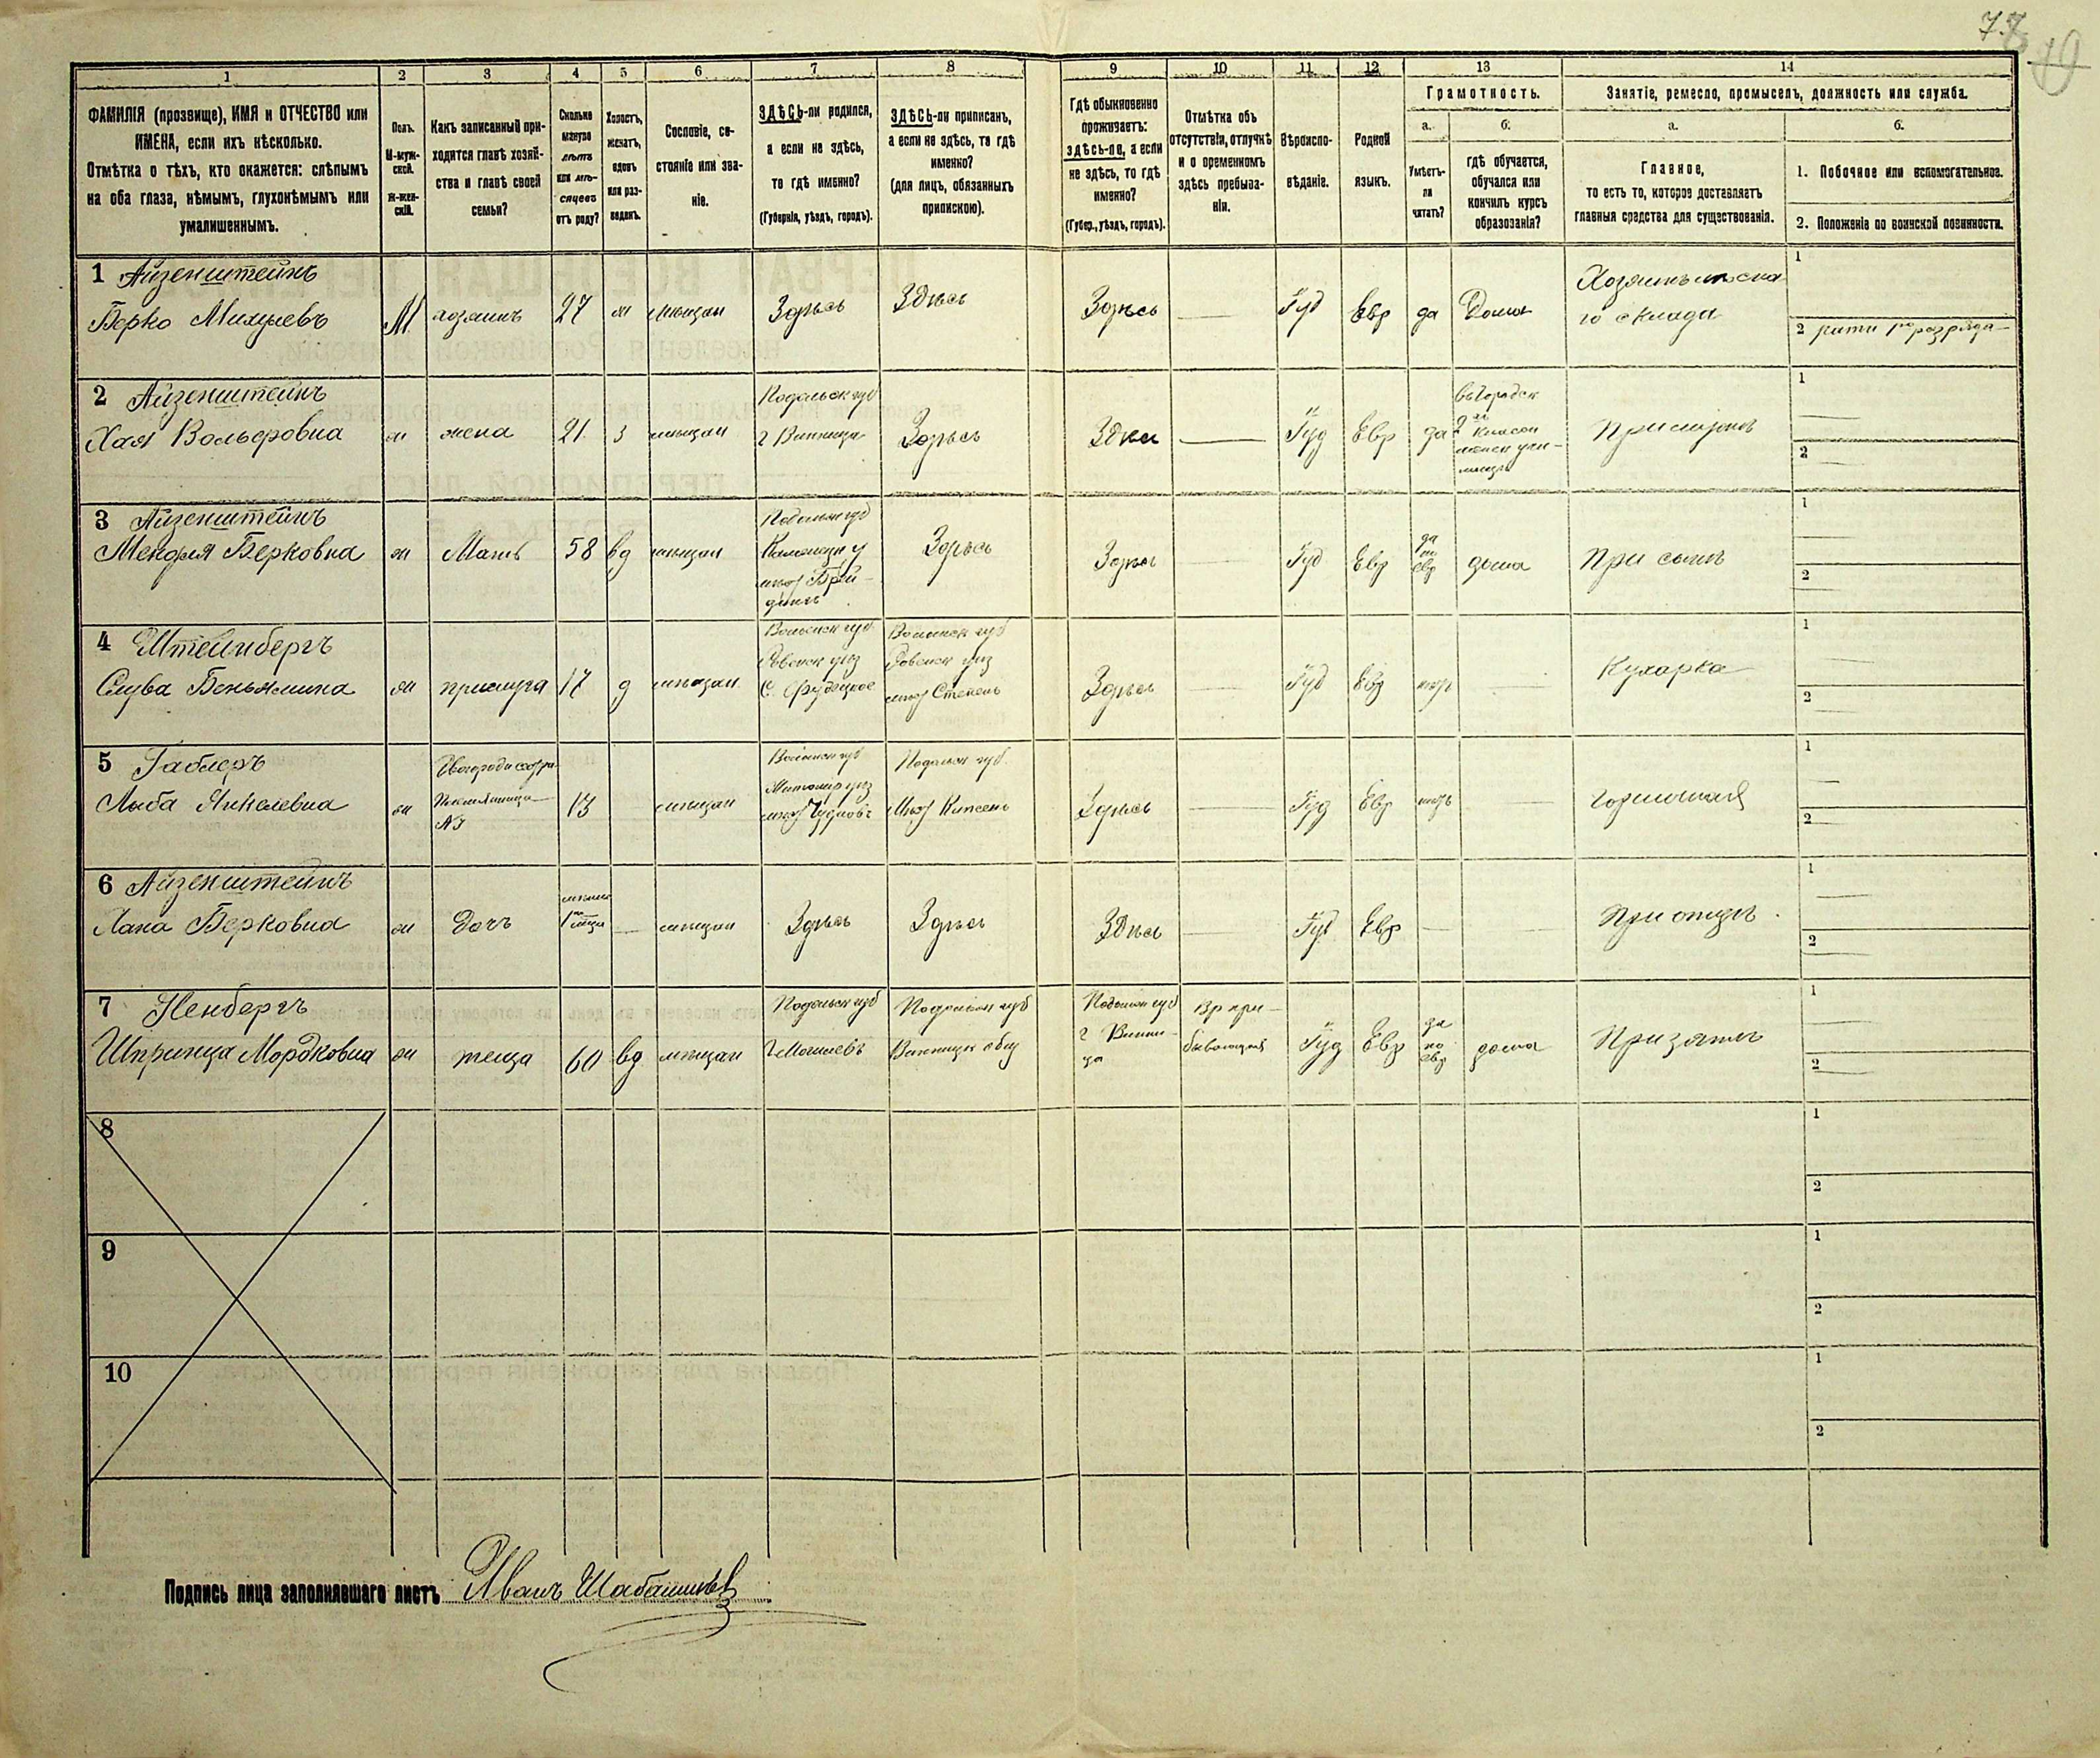 77
1 2 3 4 5 6 7 8 9 10 11 12 13 14
ФАМИЛІЯ (прозвище), ИМЯ и ОТЧЕСТВО или
ИМЕНА, если ихъ нѣсколько.
Отмѣтка о тѣхъ, кто окажется: слѣпымъ
на оба глаза, нѣмымъ, глухонѣмымъ или
умалишеннымъ.
Полъ.
М-муж-
ской.
Ж-жен-
скій.
Какъ записанный при-
ходится главѣ хозяй-
ства и главѣ своей
семьи?
Сколько
минуло
лѣтъ
или мѣ-
сяцевъ
отъ роду?
Холостъ,
женатъ,
вдовъ
или раз-
веденъ.
Сословіе, со-
стояніе или зва-
ніе.
ЗДѢСЬ-ли родился,
а если не здѣсь,
то гдѣ именно?
(Губернія, уѣздъ, городъ).
ЗДѢСЬ-ли приписанъ,
а если не здѣсь, то гдѣ
именно?
(для лицъ, обязанныхъ
припискою).
Гдѣ обыкновенно
проживаетъ:
здѣсь-ли, а если
не здѣсь, то гдѣ
именно?
(Губер., уѣздъ, городъ).
Отмѣтка объ
отсутствіи, отлучкѣ
и о временномъ
здѣсь пребыва-
ніи.
Вѣроиспо-
вѣданіе.
Родной
языкъ.
Грамотность.
а.
Умѣетъ-
ли
читать?
б.
гдѣ обучается,
обучался или
кончилъ курсъ
образованія?
Занятіе, ремесло, промыселъ, должность или служба.
а.
Главное,
то есть то, которое доставляетъ
главныя средства для существованія.
б.
1. Побочное или вспомогательное.
2. Положеніе по воинской повинности.
1 Айзенштейнъ
Берко Михулевъ М хозяинъ 27 ж мѣщан Здѣсь Здѣсь Здѣсь Іуд Евр да Дома
го склада
1
2 рати 1го разряда
2 Айзенштейнъ
Хая Вольфовна ж жена 21 З мѣщан
Подольск губ
г Винница
Здѣсь Здѣсь Іуд Евр да
1
2
3 Айзенштейнъ
Мендля Берковна ж Мать 58 вд мѣщан
Подольск губ
Каменец у
Здѣсь Здѣсь Іуд Евр
да
по
евр
дома При сынѣ
1
2
4 Штейнбергъ
Слува Беньямина ж прислуга 17 д мѣщан
Волынск губ
Ровенск уѣз
Волынск губ
Ровенск уѣз
мѣст Степень
Здѣсь Іуд Евр нѣтъ Кухарка
1
2
5 Габлеръ
Лыба Янкелевна ж
13 мѣщан
Волынск губ
Житомир уѣз
мѣст Чудновъ
Подольск губ
Здѣсь Іуд Евр нѣтъ горничная
1
2
6 Айзенштейнъ
Хана Берковна ж Дочъ
мѣщан Здѣсь Здѣсь Здѣсь Іуд Евр При отцѣ
1
2
7 Ненбергъ
Шпринца Мордковна ж теща 60 вд мѣщан
Подольск губ
г Могилевъ
Подольск губ
Винницк общ
Подольск губ
г Винни-
ца
Вр при-
бывающая
Іуд Евр
да
по
евр
дома При зятѣ
1
2
8
1
2
9
1
2
10
1
2
Подпись лица заполнявшаго листъ Иванъ Шабашинъ